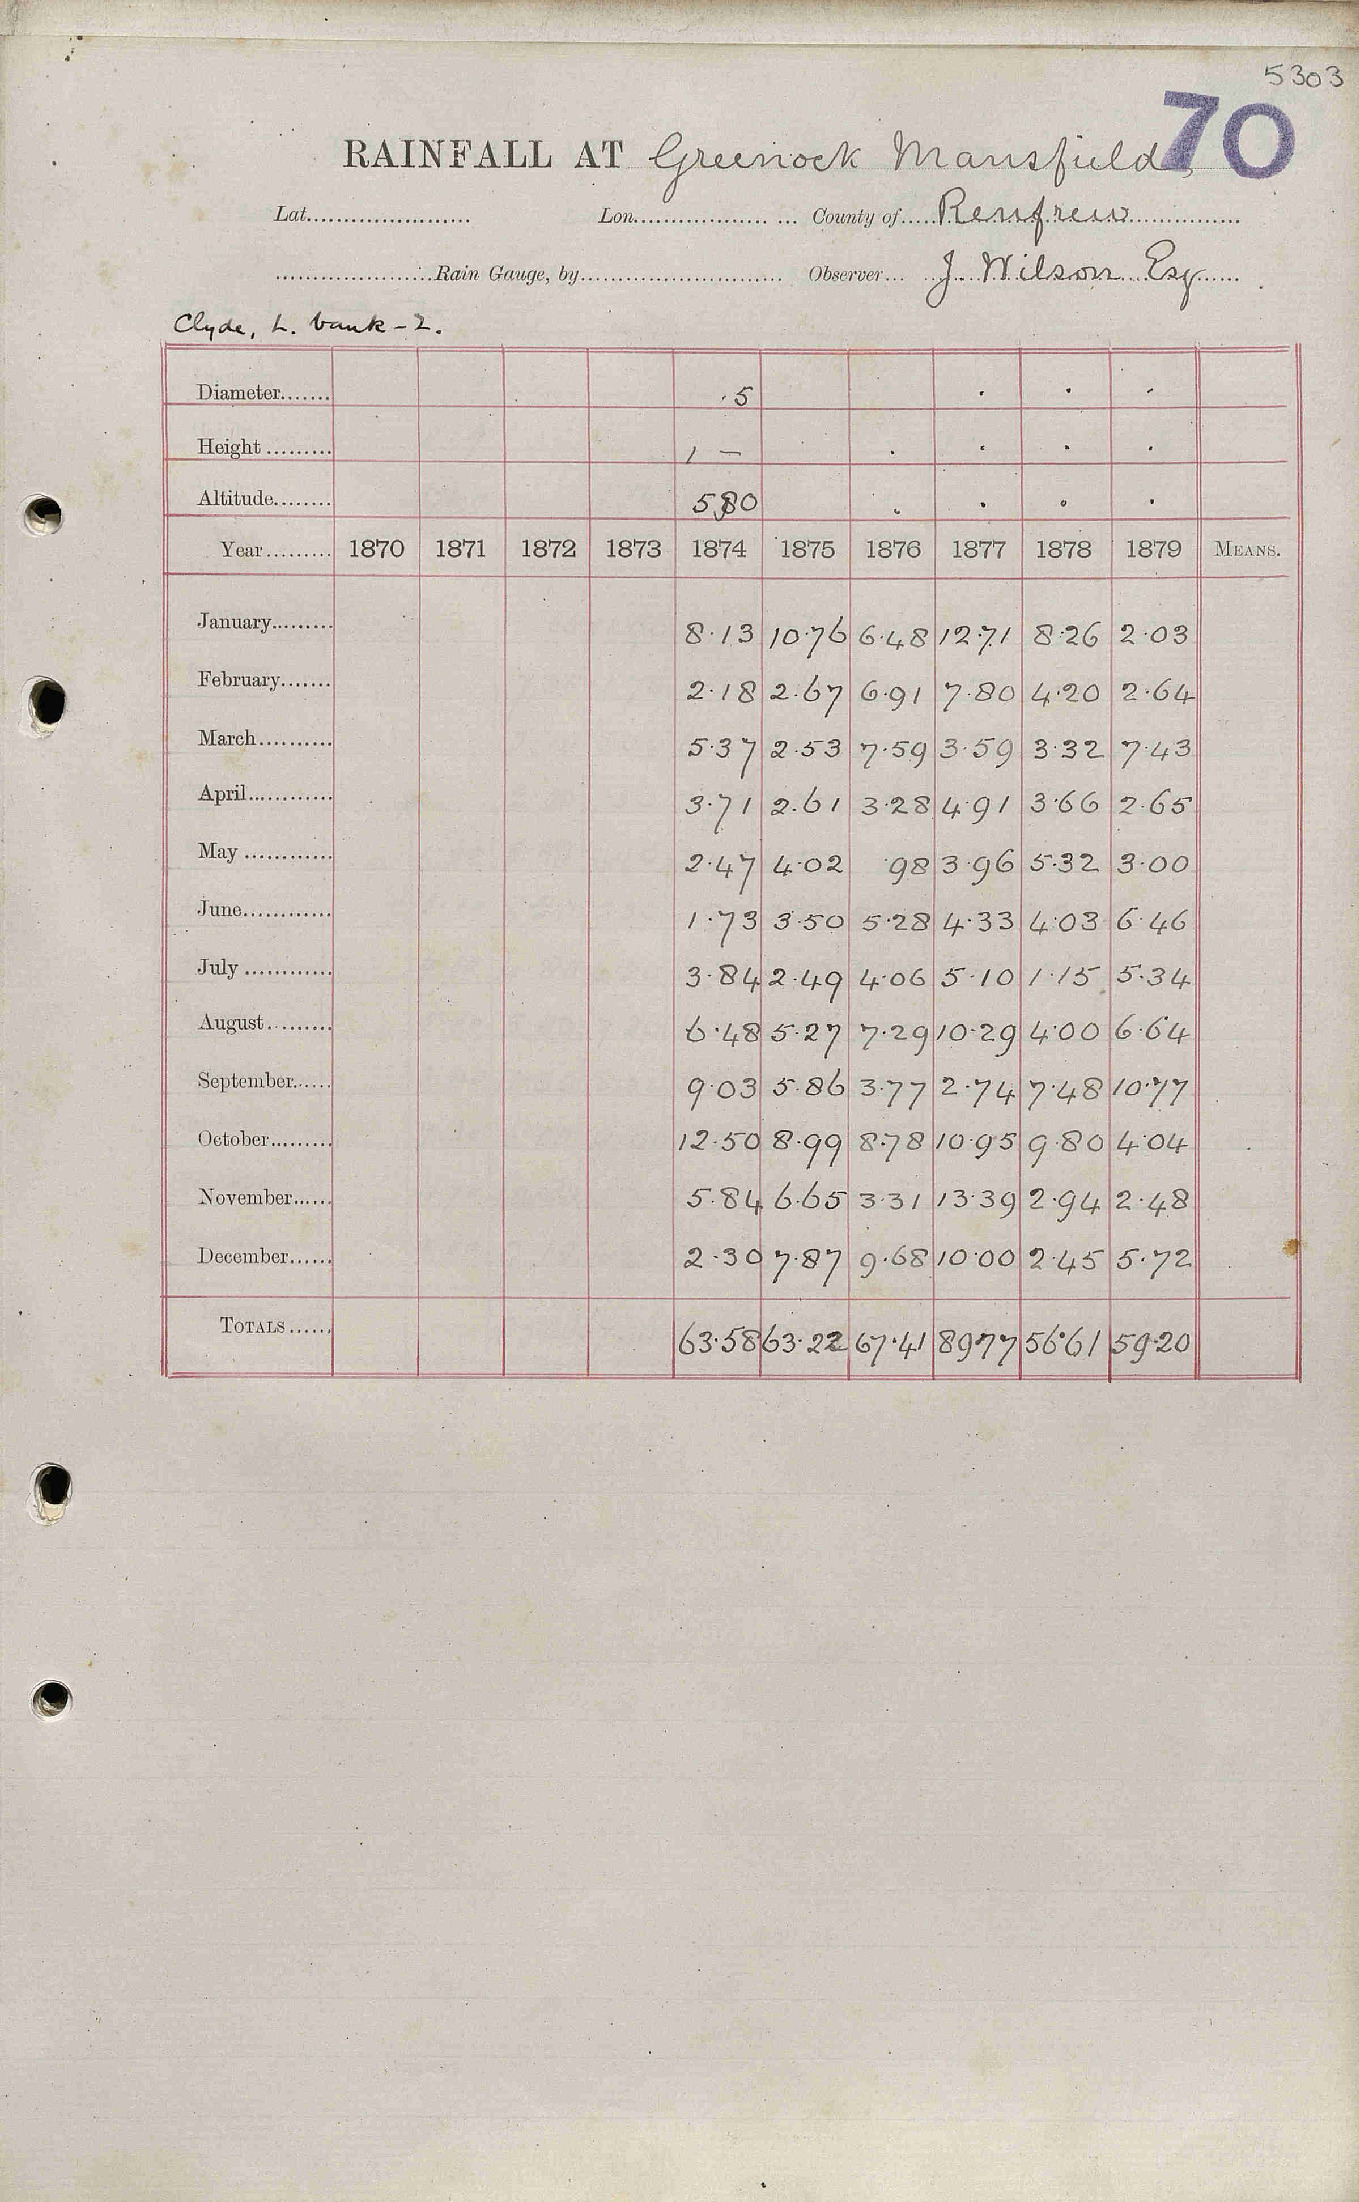 5303
70
RAINFALL AT Greenock Mansfield
Lat. Lon. County of Renfrew
Rain Gauge, by Observer J. Wilson Esq
Clyde, L. bank - 2.
Diameter 5
Height 1 —
Altitude 580
Year 1870 1871 1872 1873 1874 1875 1876 1877 1878 1879 MEANS.
January 8·13 10·76 6·48 12·71 8·26 2·03
February 2·18 2·67 6·91 7·80 4·20 2·64
March 5·37 2·53 7·59 3·59 3·32 7·43
April 3·71 2·61 3·28 4·91 3·66 2·65
May 2·47 4·02 ·98 3·96 5·32 3·00
June 1·73 3·50 5·28 4·33 4·03 6·46
July 3·84 2·49 4·06 5·10 1·15 5·34
August 6·48 5·27 7·29 10·29 4·00 6·64
September 9·03 5·86 3·77 2·74 7·48 10·77
October 12·50 8·99 8·78 10·95 9·80 4·04
November 5·84 6·65 3·31 13·39 2·94 2·48
December 2·30 7·87 9·68 10·00 2·45 5·72
TOTALS 63·58 63·22 67·41 89·77 56·61 59·20